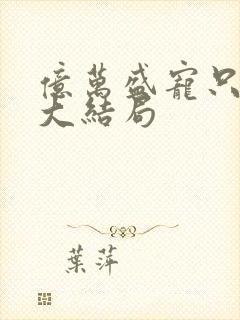 億萬盛寵只
大結局
葉萍